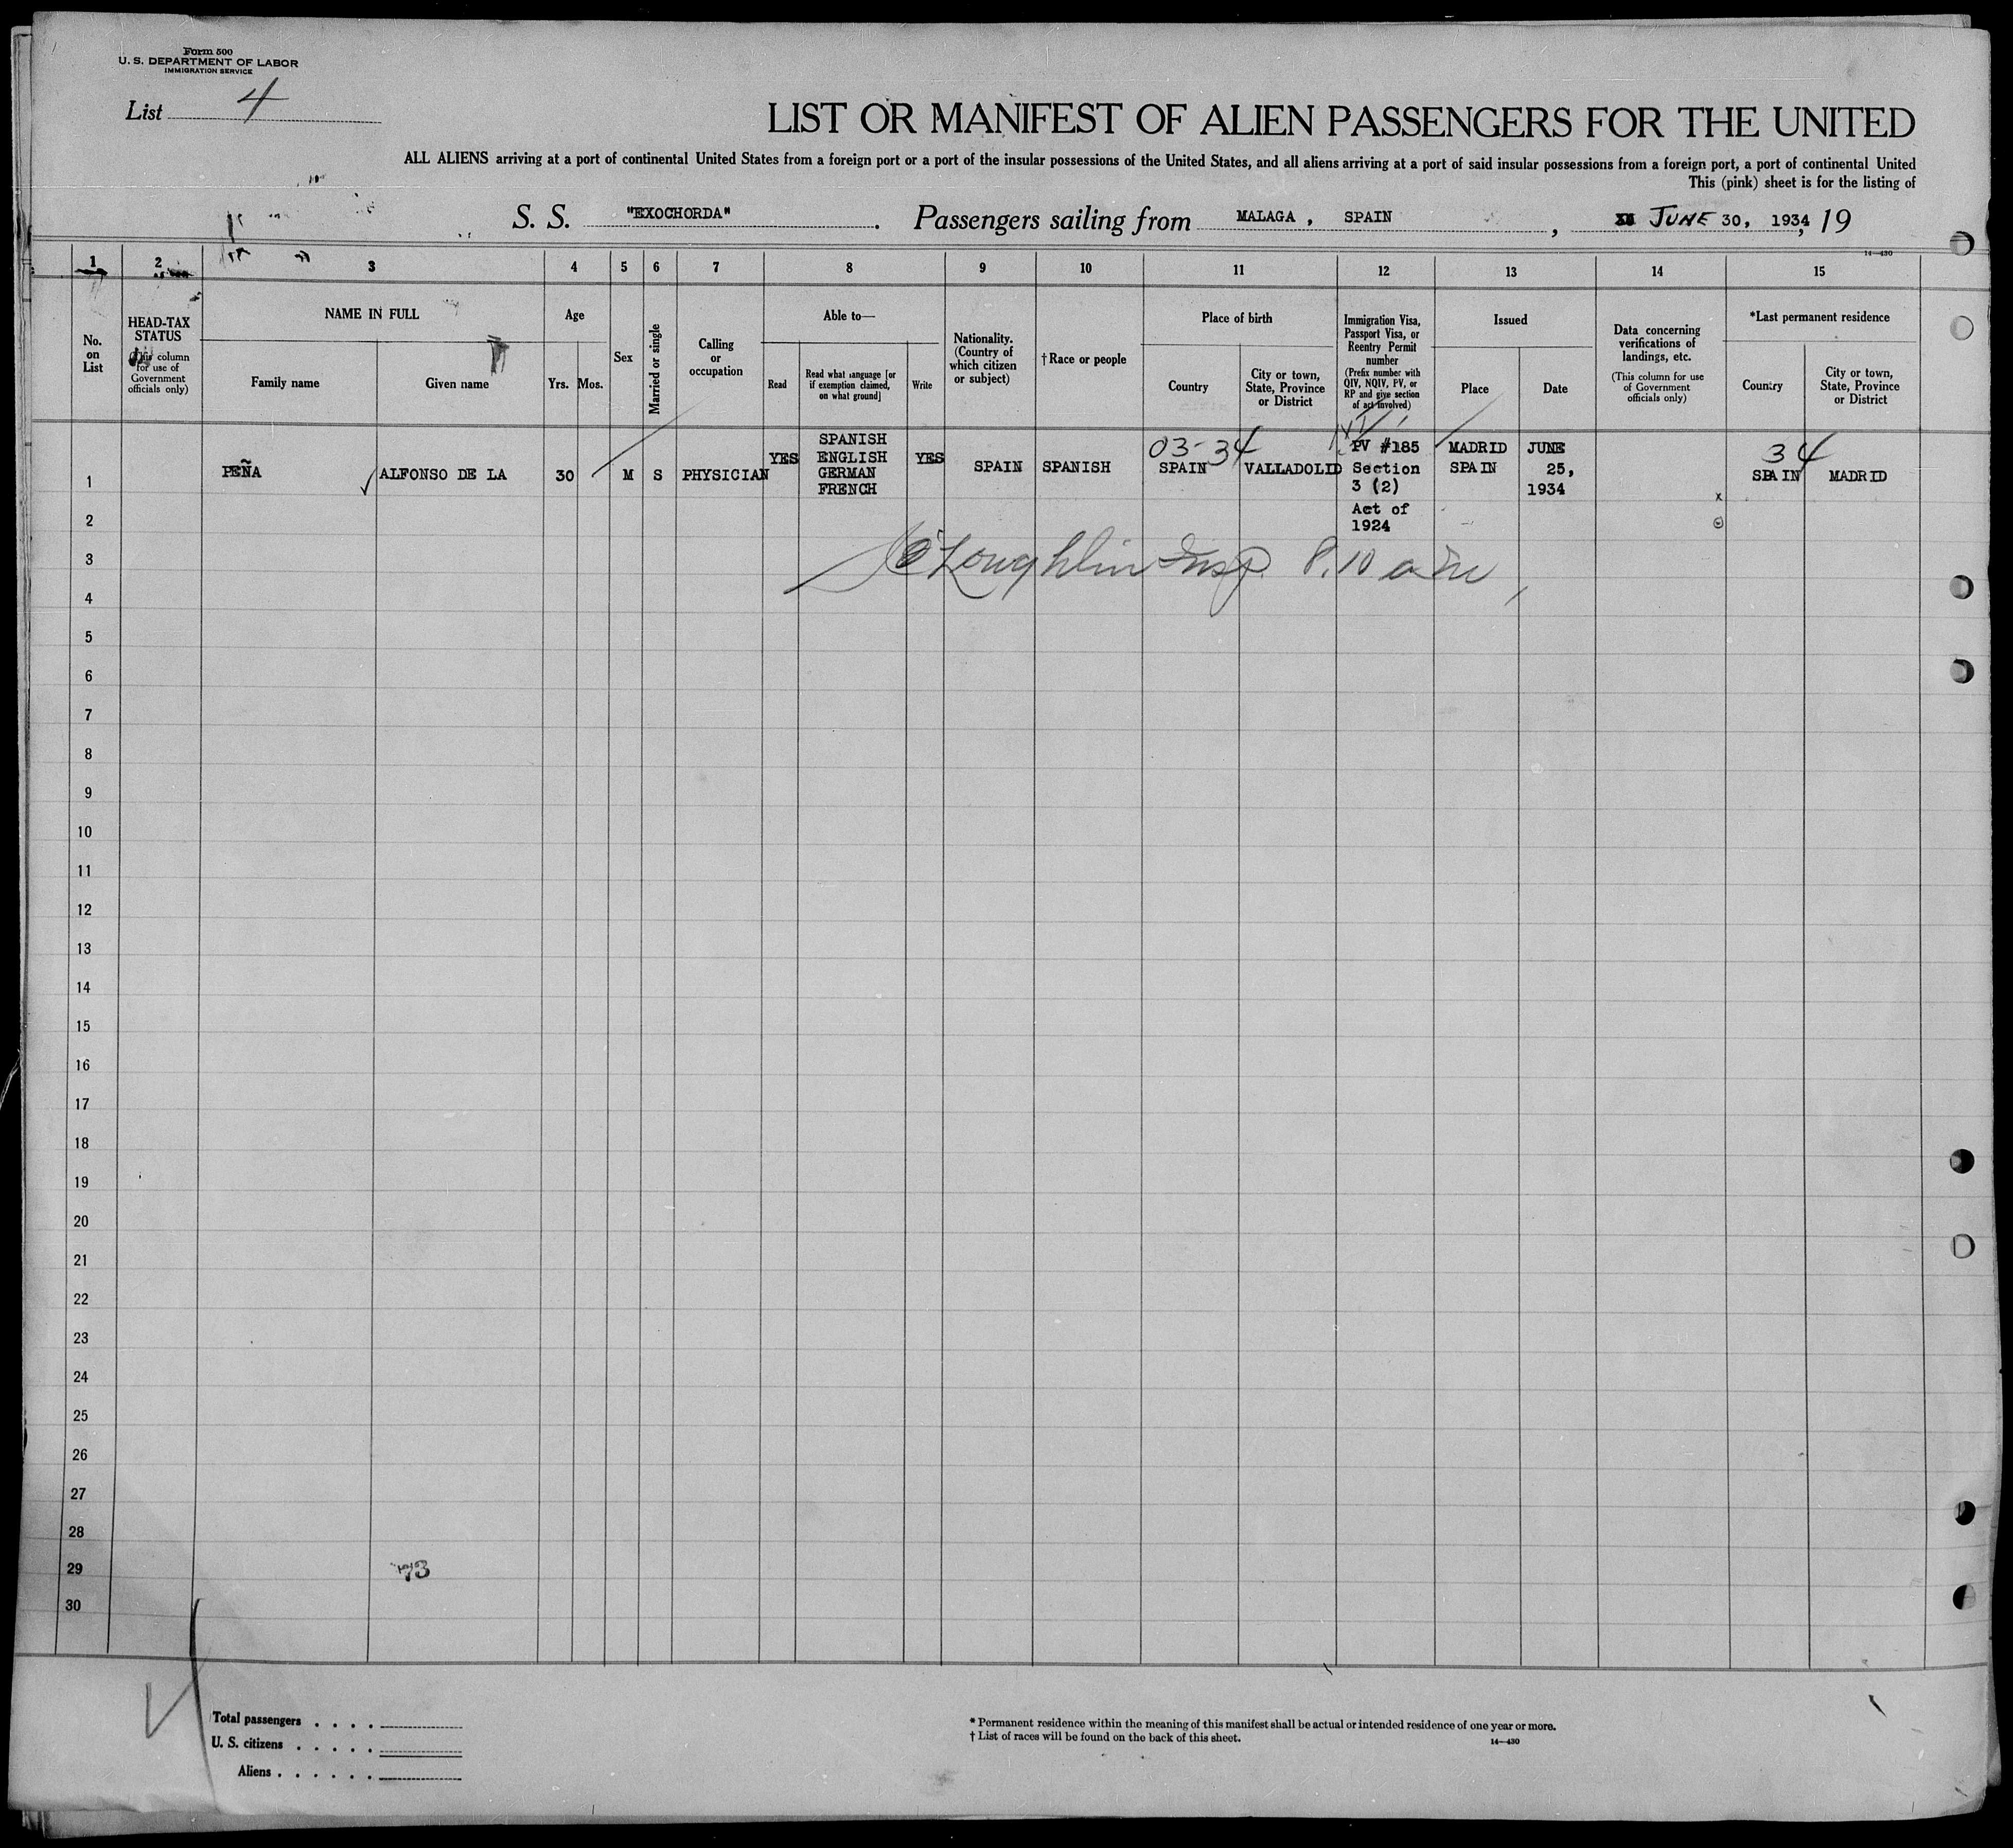 Form 500
U. S. DEPARTMENT OF LABOR
IMMIGRATION SERVICE
List 4
LIST OR MANIFEST OF ALIEN PASSENGERS FOR THE UNITED
ALL ALIENS arriving at a port of continental United States from a foreign port or a port of the insular possessions of the United States, and all aliens arriving at a port of said insular possessions from a foreign port, a port of continental United
This (pink) sheet is for the listing of
S. S. "EXOCHORDA". Passengers sailing from MALAGA, SPAIN, JUNE 30, 1934, 19
14—430
1 2 3 4 5 6 7 8 9 10 11 12 13 14 15
No. on List
HEAD-TAX STATUS
(This column for use of Government officials only)
NAME IN FULL
Family name
Given name
Age
Yrs. Mos.
Sex
Married or single
Calling or occupation
Able to—
Read
Read what language [or if exemption claimed, on what ground]
Write
Nationality. (Country of which citizen or subject)
† Race or people
Place of birth
Country
City or town, State, Province or District
Immigration Visa, Passport Visa, or Reentry Permit number
(Prefix number with QIV, NQIV, PV, or RP and give section of act involved)
Issued
Place
Date
Data concerning verifications of landings, etc.
(This column for use of Government officials only)
*Last permanent residence
Country
City or town, State, Province or District
1 PEÑA ALFONSO DE LA 30 M S PHYSICIAN YES SPANISH ENGLISH GERMAN FRENCH YES SPAIN SPANISH 03-34 SPAIN VALLADOLID PV #185 Section 3 (2) Act of 1924 MADRID SPAIN JUNE 25, 1934 34 SPAIN MADRID
x
2
3 O'Loughlin Insp. 8.10 am
4
5
6
7
8
9
10
11
12
13
14
15
16
17
18
19
20
21
22
23
24
25
26
27
28
29 73
30
Total passengers . . . .
U. S. citizens . . . . .
Aliens . . . . . .
* Permanent residence within the meaning of this manifest shall be actual or intended residence of one year or more.
† List of races will be found on the back of this sheet.
14—430